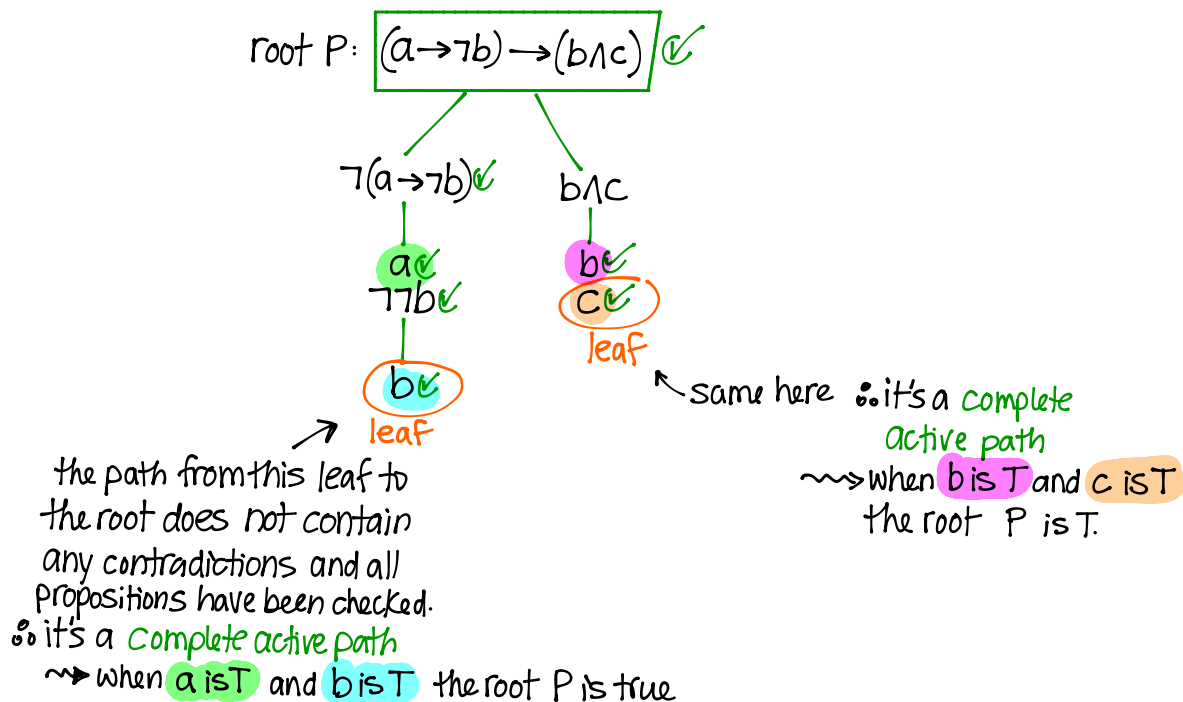 root P: (a→¬b)→(b∧c) ✓
¬(a→¬b)✓
b∧c
a✓
¬¬b✓
b✓
c✓
leaf
b✓
leaf
the path from this leaf to
the root does not contain
any contradictions and all
propositions have been checked.
∴ it's a complete active path
⇝ when a is T and b is T the root P is true
same here ∴ it's a complete
active path
⇝ when b is T and c is T
the root P is T.